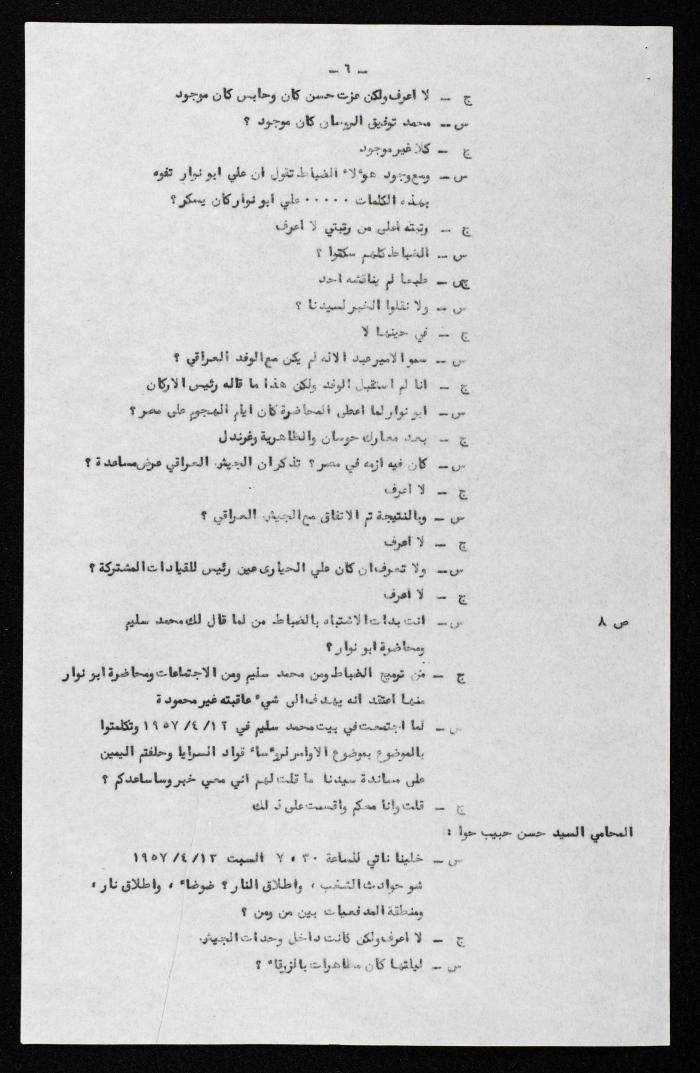 - ٦ -
ج - لا اعرف ولكن عزت حسن كان وحابس كان موجود
س - محمد توفيق الروسان كان موجود ؟
ج - كلا غير موجود
س - ومع وجود هؤلاء الضباط تقول ان علي ابو نوار تفوه
بهذه الكلمات ..... علي ابو نوار كان يسكر ؟
ج - رتبته اعلى من رتبتي لا اعرف
س - الضباط كلهم سكتوا ؟
ج - طبعا لم يناقشه احد
س - ولا نقلوا الخبر لسيدنا ؟
ج - في حينها لا
س - سمو الامير عبد الاله لم يكن مع الوفد العراقي ؟
ج - انا لم استقبل الوفد ولكن هذا ما قاله رئيس الاركان
س - ابو نوار لما اعطى المحاضرة كان ايام الهجوم على مصر ؟
ج - بعد معارك حوسان والظاهرية وغرندل
س - كان فيه ازمه في مصر ؟ تذكر ان الجيش العراقي عرض مساعدة ؟
ج - لا اعرف
س - وبالنتيجة تم الاتفاق مع الجيش العراقي ؟
ج - لا اعرف
س - ولا تعرف ان كان علي الحياري عين رئيس للقيادات المشتركة ؟
ج - لا اعرف
ص ٨ س - انت بدات الاشتباه بالضباط من لما قال لك محمد سليم
ومحاضرة ابو نوار ؟
ج - من ترميج الضباط ومن محمد سليم ومن الاجتماعات ومحاضرة ابو نوار
منها اعتقد انه يهدف الى شيء عاقبته غير محمودة
س - لما اجتمعت في بيت محمد سليم في ١٢ /٤ /١٩٥٧ وتكلمتوا
بالموضوع بموضوع الاوامر لرؤساء قواد السرايا وحلفتم اليمين
على مساندة سيدنا ما قلت لهم اني معي خبر وساساعدكم ؟
ج - قلت وانا معكم واقسمت على ذلك
المحامي السيد حسن حبيب حوا :
س - خلينا ناتي للساعة ٣٠ ، ٧ السبت ١٣ /٤ /١٩٥٧
شو حوادث الشغب ، واطلاق النار ؟ ضوضاء ، واطلاق نار ،
ومنطقة المدفعيات بين من ومن ؟
ج - لا اعرف ولكن كانت داخل وحدات الجيش.
س - ليلتها كان مظاهرات بالزرقاء ؟